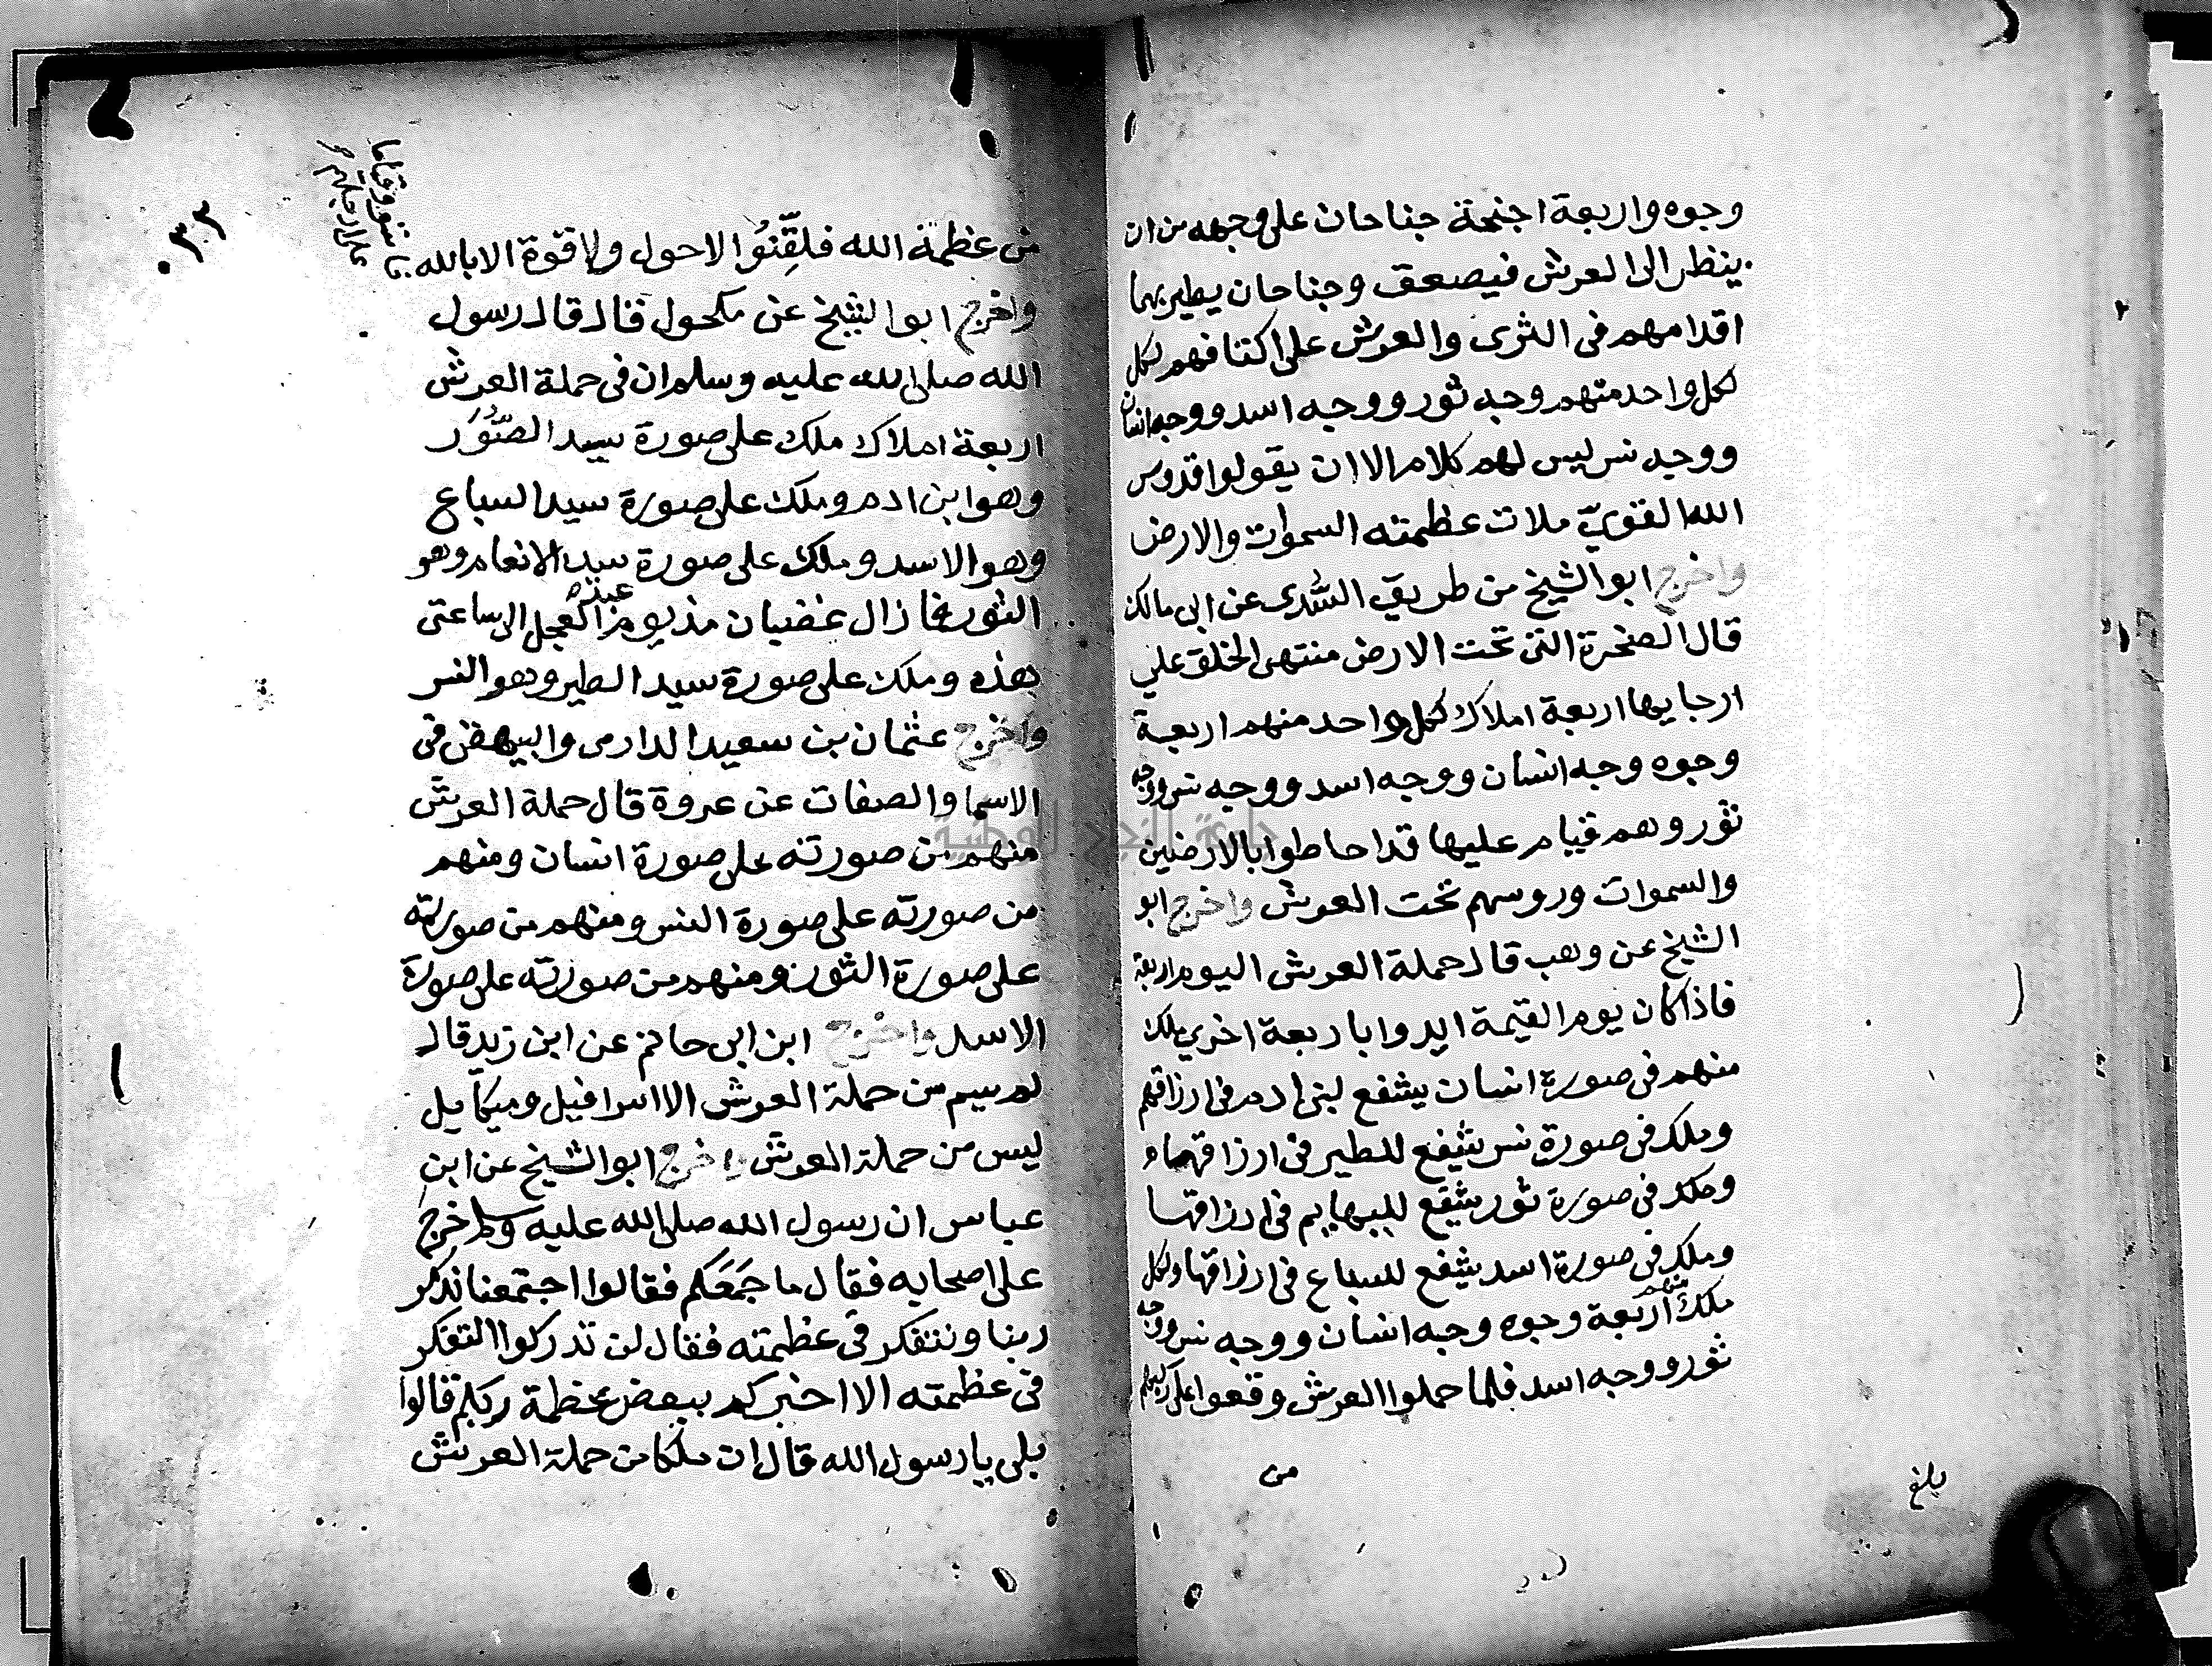 وجوه واربعة اجنحة جناحان على وجهه من ان
ينظر الى العرش فيصعق وجناحان يطير بهما
اقدامهم فى الثرى والعرش على اكتافهم لكل
لكل واحد منهم وجه ثور ووجه اسد ووجه انسان
ووجه نسر ليس لهم كلام الا ان يقولوا قدوس
الله القوي ملات عظمته السموات والارض
واخرج ابو الشيخ من طريق السُّدى عن ابى مالك
قال الصخرة التى تحت الارض منتهى الخلق على
ارجايها اربعة املاك لكل واحد منهم اربعة
وجوه وجه انسان ووجه اسد ووجه نسر ووجه
ثور وهم قيام عليها قد احاطوا بالارضين
والسموات وروسهم تحت العرش واخرج ابو
الشيخ عن وهب قال حملة العرش اليوم اربعة
فاذا كان يوم القيمة ايدوا باربعة اخري ملك
منهم فى صورة انسان يشفع لبنى ادم فى ارزاقهم
وملك فى صورة نسر يشفع للطير فى ارزاقها
وملك فى صورة ثور يشفع للبهايم فى ارزاقها
وملك فى صورة اسد يشفع للسباع فى ارزاقها ولكل
ملك منهم اربعة وجوه وجه انسان ووجه نسر ووجه
ثور ووجه اسد فلما حملوا العرش وقعوا على ركبهم
من
بلغ
٣٢
من عظمة الله فلقِّنُوا لاحول ولا قوة الا بالله
واخرج ابو الشيخ عن مكحول قال قال رسول
الله صلى الله عليه وسلم ان فى حملة العرش
اربعة املاك ملك على صورة سيد الصُّوَر
وهو ابن ادم وملك على صورة سيد السباع
وهو الاسد وملك على صورة سيد الانعام وهو
الثور فما زال غضبان مذ يوم العجل الى ساعتى
هذه وملك على صورة سيد الطير وهو النسر
واخرج عثمان بن سعيد الدارمى والبيهقى فى
الاسما والصفات عن عروة قال حملة العرش
منهم من صورته على صورة انسان ومنهم
من صورته على صورة النسر ومنهم من صورته
على صورة الثور ومنهم من صورته على صورة
الاسد واخرج ابن ابى حاتم عن ابن زيد قال
لم يسم من حملة العرش الا اسرافيل وميكآيل
ليس من حملة العرش واخرج ابو الشيخ عن ابن
عباس ان رسول الله صلى الله عليه وسلم خرج
على اصحابه فقال ما جَمَعَكم فقالوا اجتمعنا نذكر
ربنا ونتفكر فى عظمته فقال لن تدركوا التفكر
فى عظمته الا اخبركم ببعض عظمة ربكم قالوا
بلى يا رسول الله قال ان ملكا من حملة العرش
جامعة النجاح الوطنية